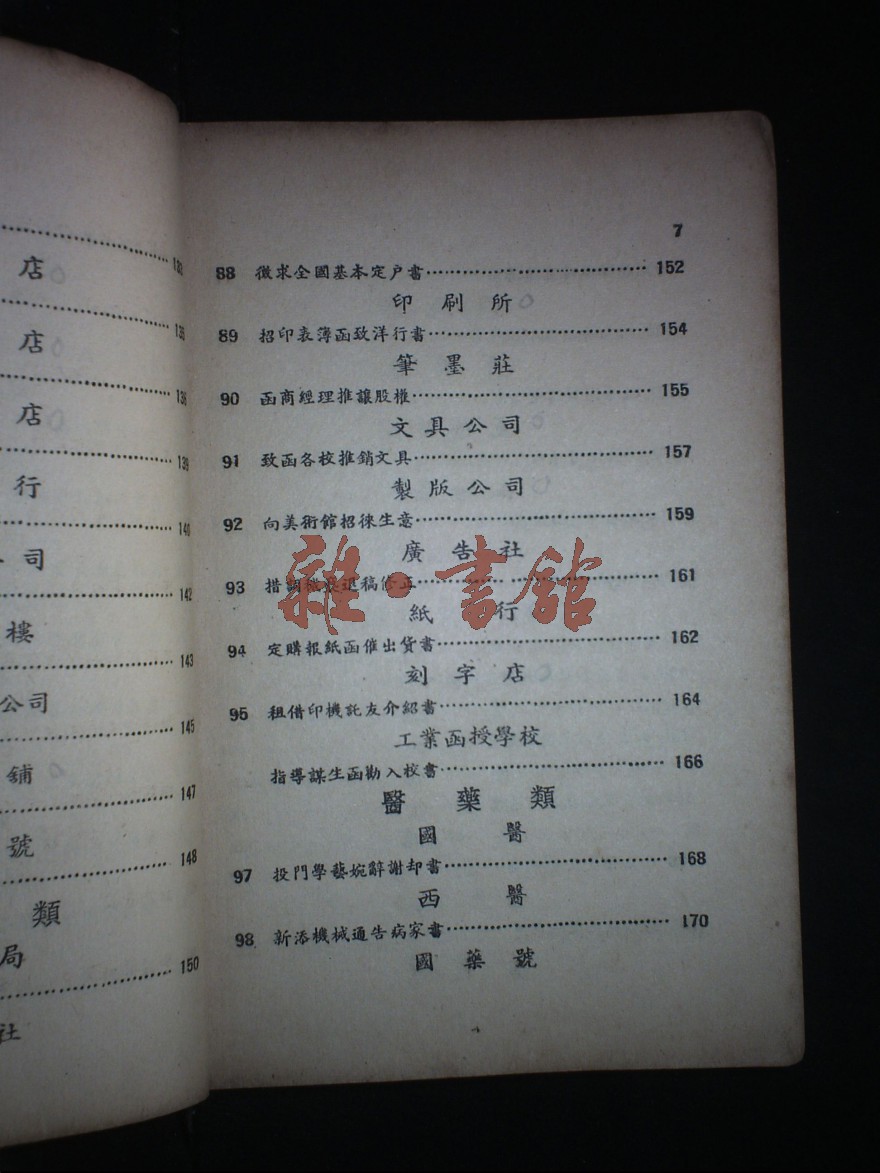 7
88 徵求全國基本定户書 152
印刷所
89 招印表簿函致洋行書 154
筆墨莊
90 函商經理推讓股權 155
文具公司
91 致函各校推銷文具 157
製版公司
92 向美術館招徠生意 159
廣告社
93 措調 退稿修正 161
紙行
94 定購報紙函催出貨書 162
刻字店
95 租借印機託友介紹書 164
工業函授學校
指導謀生函勸入校書 166
醫藥類
國醫
97 投門學藝婉辭謝却書 168
西醫
98 新添機械通告病家書 170
國藥號
雜·書館
133
店
135
店
136
店
139
行
140
司
142
樓
143
公司
145
舖
147
號
148
類
局
150
社